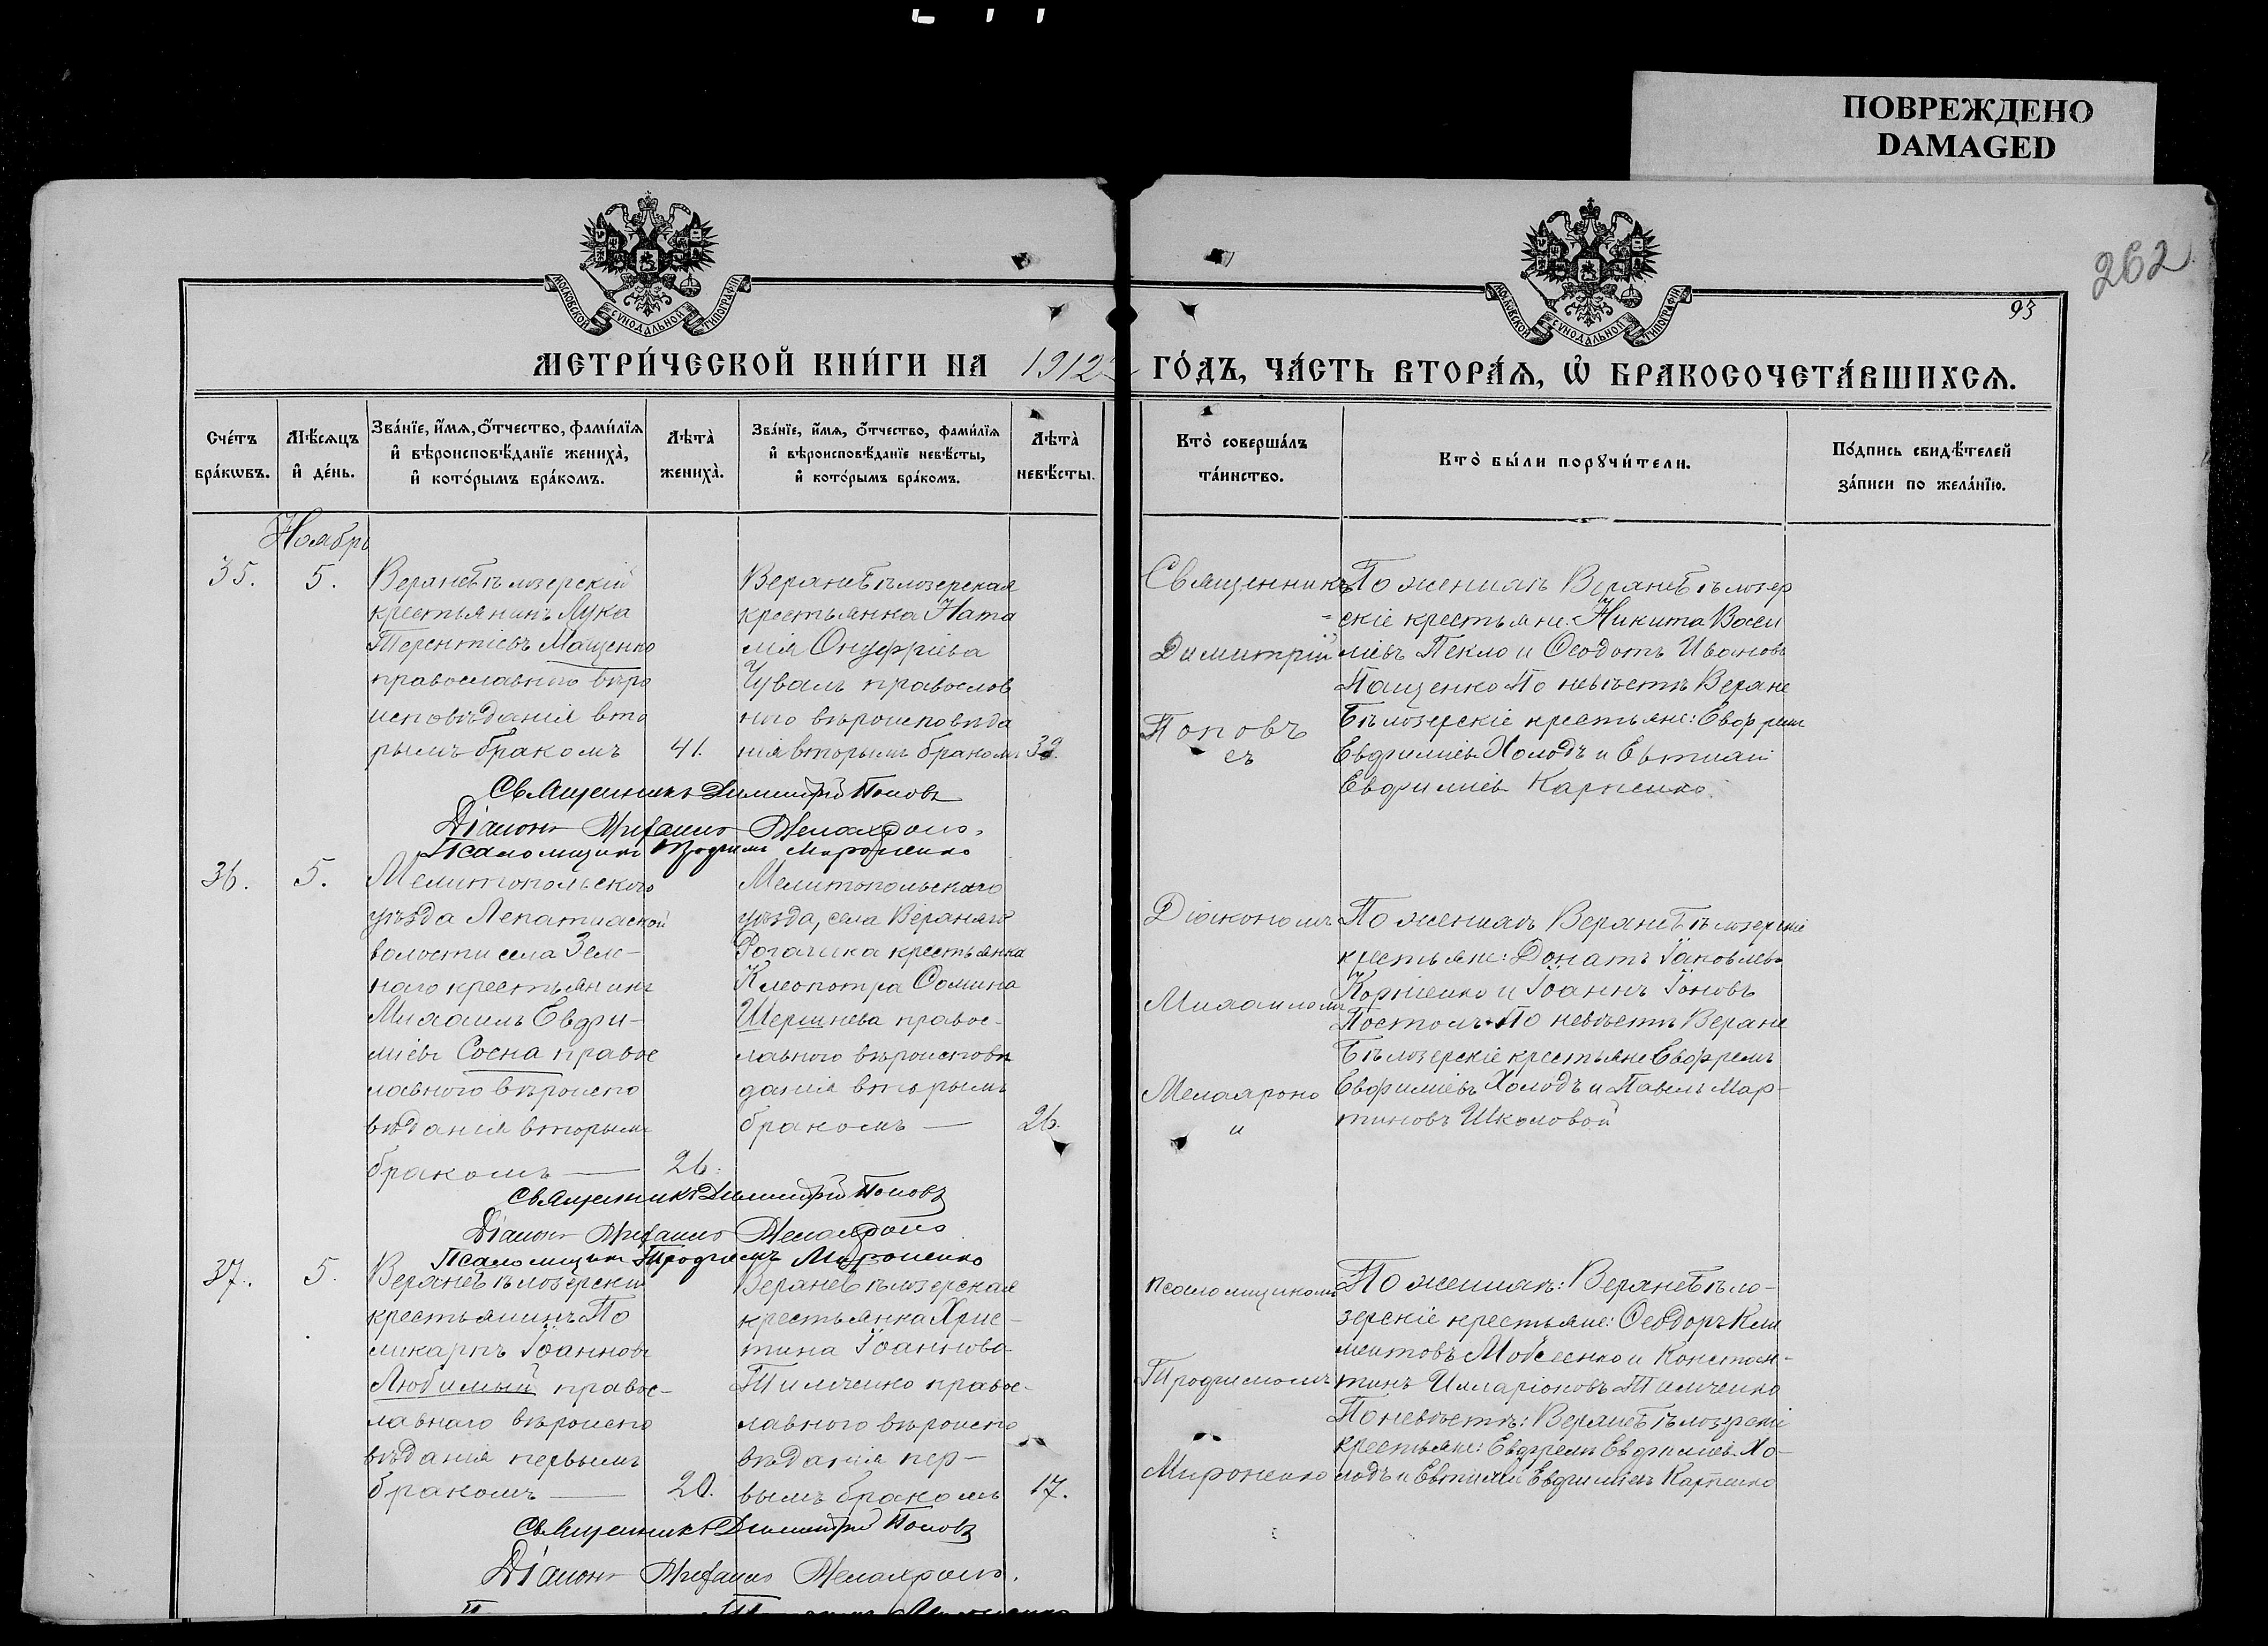 ПОВРЕЖДЕНО
DAMAGED
262
93
МОСКОВСКОЙ СѴНОДАЛЬНОЙ ТИПОГРАФІИ
МОСКОВСКОЙ СѴНОДАЛЬНОЙ ТИПОГРАФІИ
МЕТРИ́ЧЕСКОЙ КНИ́ГИ НА 1912 ГО́ДЪ, ЧА́СТЬ ВТОРА́Ѧ, Ѡ҆ БРАКОСОЧЕТА́ВШИХСѦ.
Сче́тъ бра́кѡвъ.
Мѣ́сѧцъ и҆ де́нь.
Зва́нїе, и҆́мѧ, ѻ҆́тчество, фами́лїѧ
и҆ вѣроисповѣ́данїе жениха̀,
и҆ кото́рымъ бра́комъ.
Лѣта̀ жениха̀.
Зва́нїе, и҆́мѧ, ѻ҆́тчество, фами́лїѧ
и҆ вѣроисповѣ́данїе невѣ́сты,
и҆ кото́рымъ бра́комъ.
Лѣта̀ невѣ́сты.
Кто̀ соверша́лъ
та́инство.
Кто̀ бы́ли порꙋчи́тели.
По́дпись свидѣ́телей
за́писи по жела́нїю.
Ноябрь
35.
5.
Верхнебѣлозерскій
крестьянинъ Лука
Терентіевъ Мащенко
православнаго вѣро
исповѣданія вто
рымъ бракомъ
41.
Верхнебѣлозерская
крестьянка Ната
лія Онуфріева
Чуваль православ
наго вѣроисповѣда
нія вторымъ бракомъ
Священникъ
Димитрій
Поповъ
съ
По женихѣ Верхнебѣлозер
=скіе крестьяне: Никита Васи
ліевъ Пекло и Ѳеодотъ Ивановъ
Пащенко По невѣстѣ Верхне
бѣлозерскіе крестьяне: Евфремъ
Евфиміевъ Холодъ и Евтихій
Евфиміевъ Карпенко.
Священникъ Димитрій Поповъ
Діаконъ Михаилъ Мелахроно.
Псаломщикъ Трофимъ Мироненко
36.
5.
Мелитопольскаго
уѣзда Лепатихской
волости села Зеле-
наго крестьянинъ
Михаилъ Евфи-
міевъ Сосна правос
лавнаго вѣроиспо
вѣданія вторымъ
бракомъ —
26.
Мелитопольскаго
уѣзда, села Верхняго
Рогачика крестьянка
Клеопатра Ѳомина
Шершнева правос-
лавнаго вѣроисповѣ
данія вторымъ
бракомъ —
26.
Діакономъ
Михаиломъ
Мелахроно
и
По женихѣ Верхнебѣлозерскіе
крестьяне: Донатъ Іаковлевъ
Корніенко и Іоаннъ Іоновъ
По невѣстѣ Верхне
бѣлозерскіе крестьяне Евфремъ
Евфиміевъ Холодъ и Павелъ Мар-
тиновъ Школовой
Священникъ Димитрій Поповъ
Діаконъ Михаилъ Мелахроно
Псаломщикъ Трофимъ Мироненко
37.
5.
Верхнебѣлозерскій
крестьянинъ По
ликарпъ Іоанновъ
Любимый правос-
лавнаго вѣроиспо
вѣданія первымъ
бракомъ —
20.
Верхнебѣлозерская
крестьянка Хрис-
тина Іоаннова
Тимченко правос-
лавнаго вѣроиспо
вѣданія пер-
вымъ бракомъ
17.
псаломщикомъ
Трофимомъ
Мироненко
По женихѣ: Верхнебѣло-
зерскіе крестьяне: Ѳеодоръ Кли
ментовъ Мовсеенко и Констан-
тинъ Илларіоновъ Тимченко
По невѣстѣ: Верхнебѣлозерскіе
крестьяне: Евфремъ Евфиміевъ Хо-
лодъ и Евтихій Евфиміевъ Карпенко
Священникъ Димитрій Поповъ
Діаконъ Михаилъ Мелахроно.